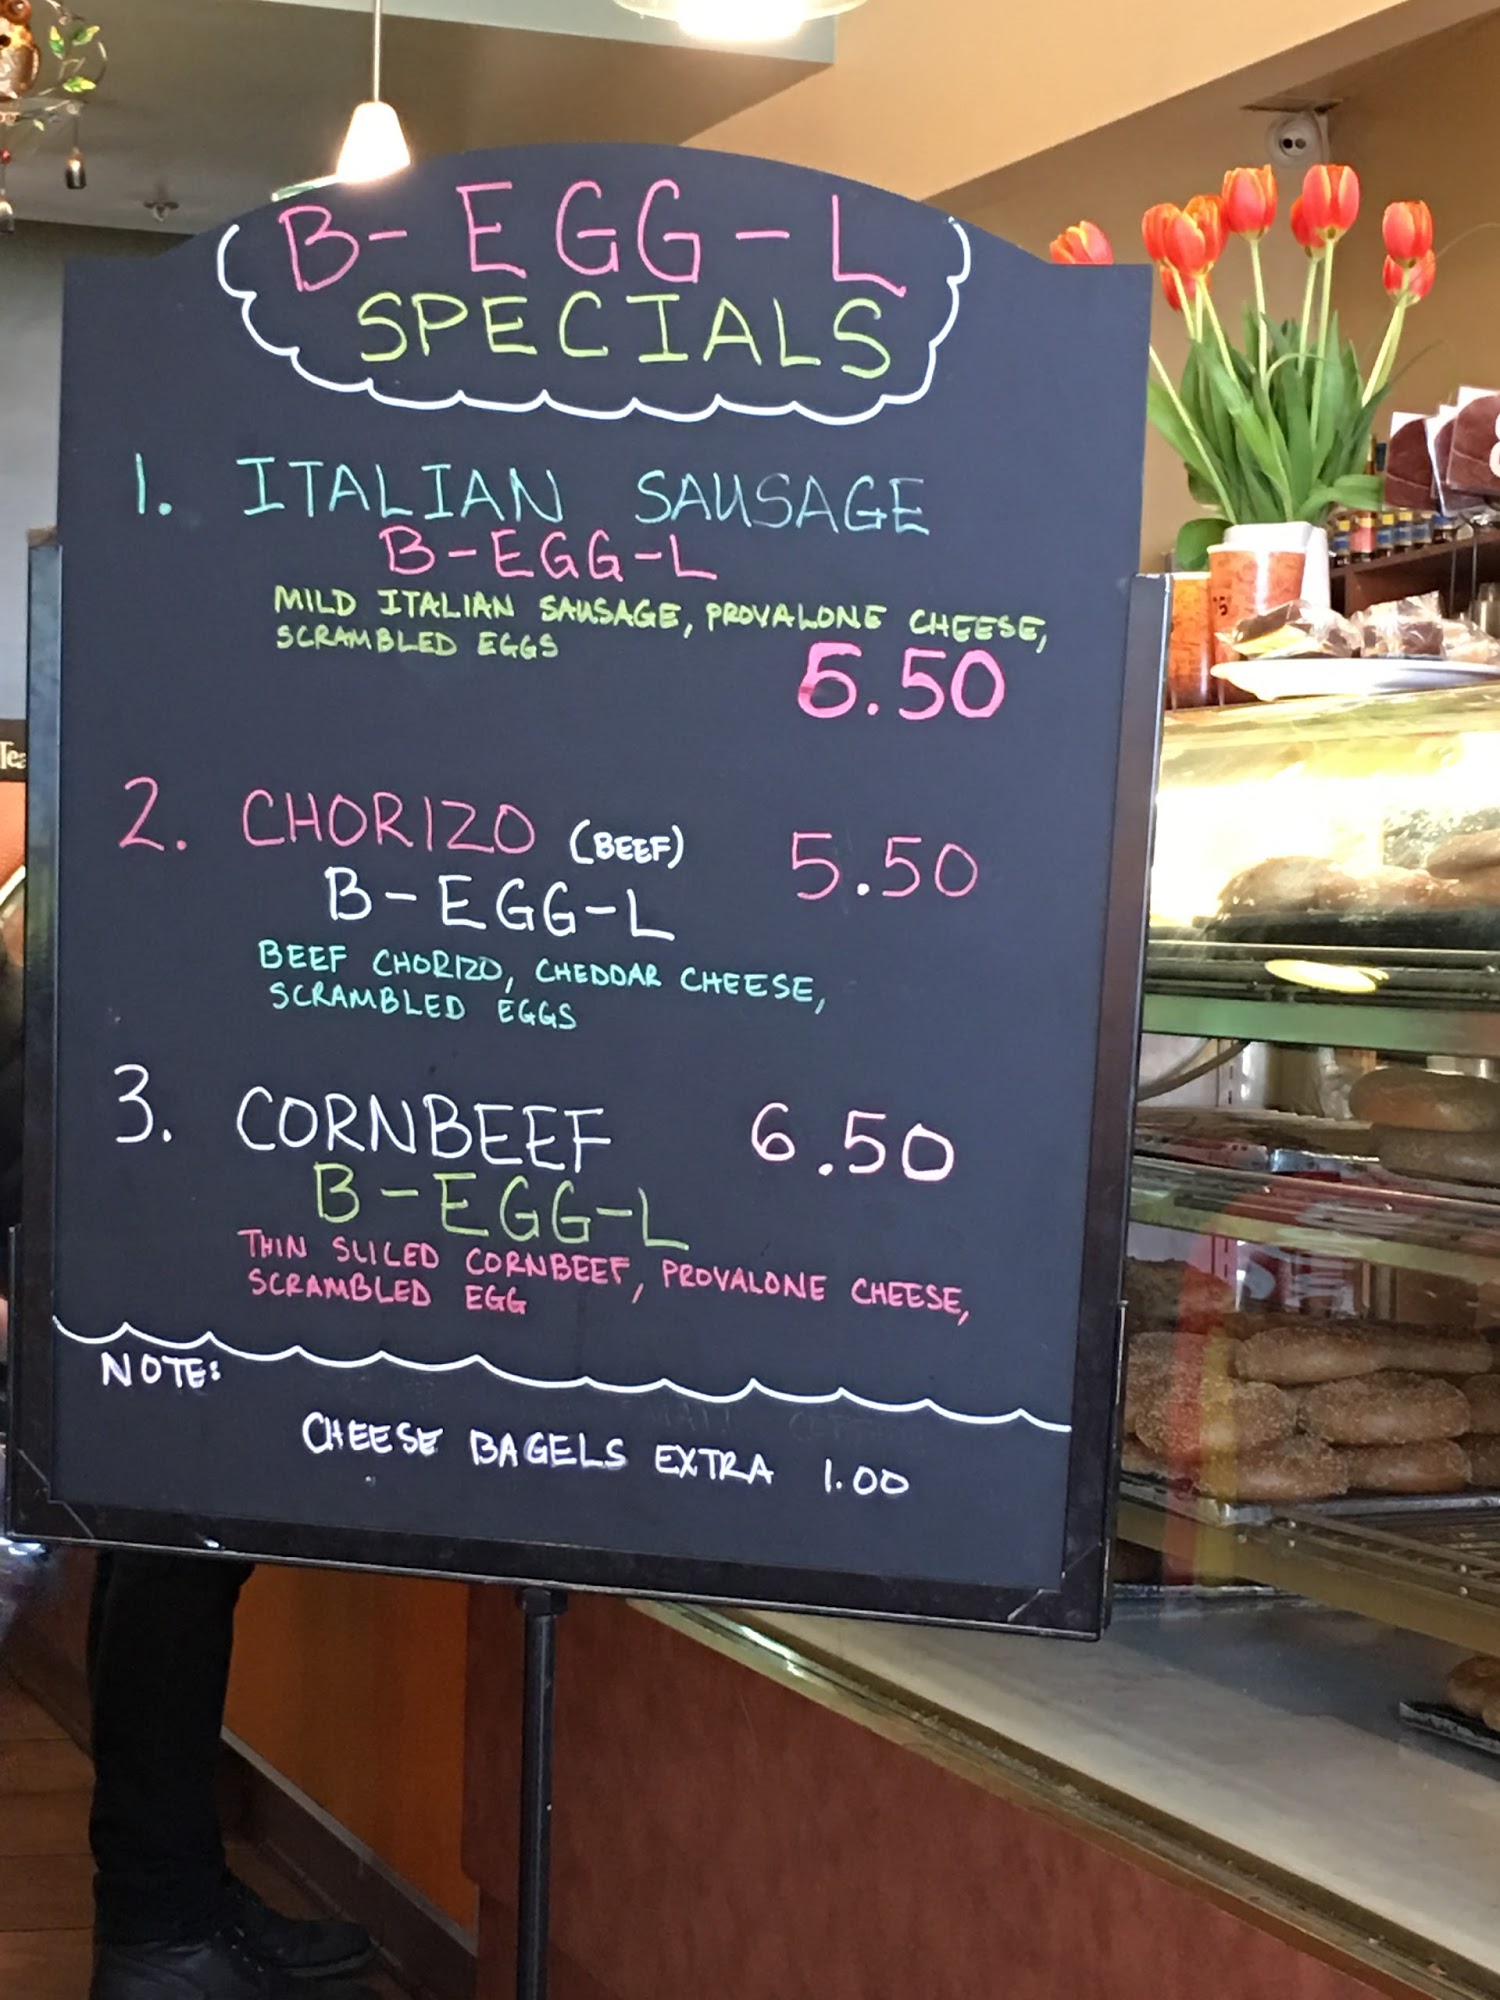 B-EGG-L
SPECIALS
1. ITALIAN SAUSAGE
B-EGG-L
MILD ITALIAN SAUSAGE, PROVALONE CHEESE,
SCRAMBLED EGGS
2. CHORIZO (BEEF) 5.50
B-EGG-L
BEEF CHORIZO, CHEDDAR CHEESE,
SCRAMBLED EGGS
3. CORNBEEF 6.50
B-EGG-L
THIN SLICED CORNBEEF, PROVALONE CHEESE,
SCRAMBLED EGG
NOTE:
CHEESE BAGELS EXTRA 1.00
Tea